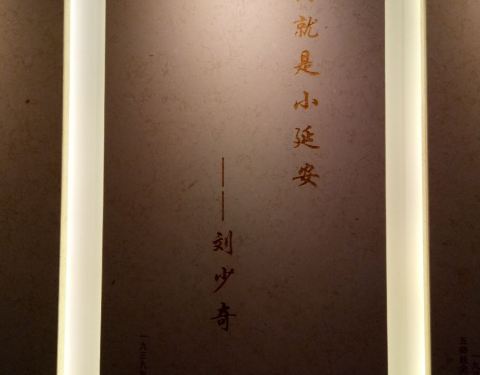 就是小延安
——刘少奇
一九三九